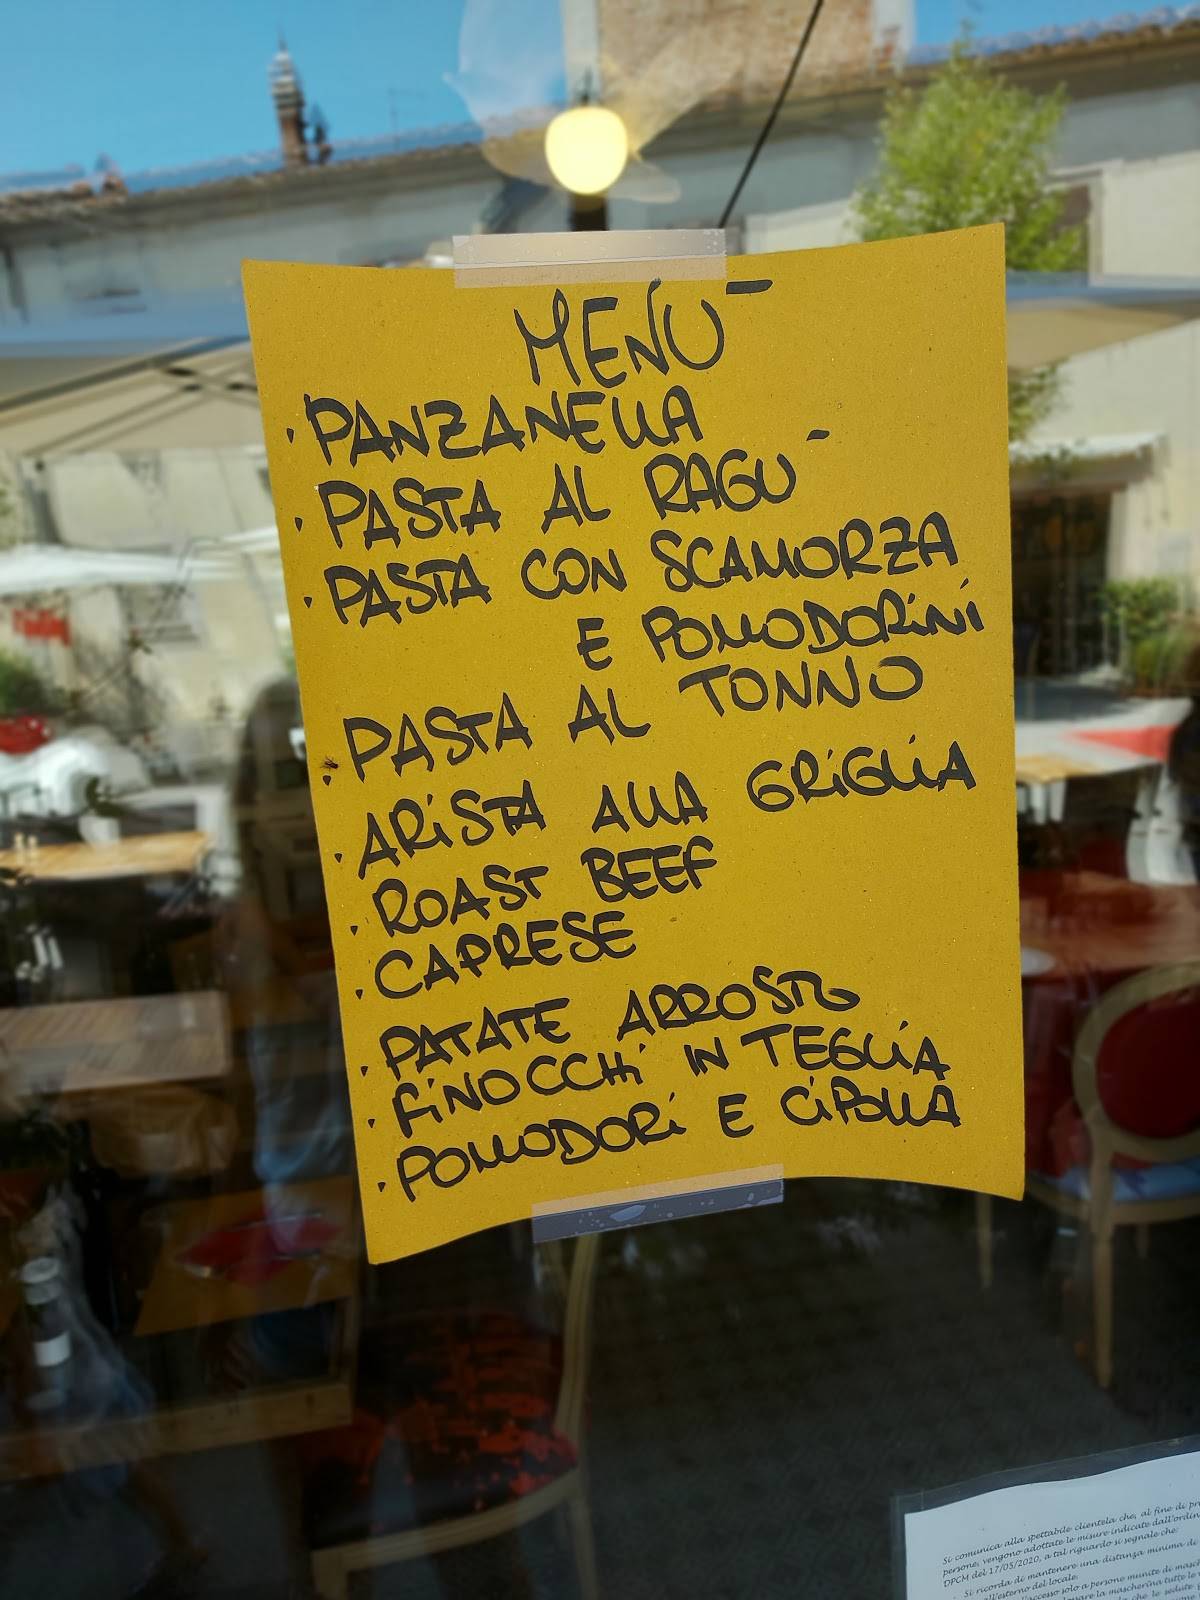 MENU-
· PANZANELLA
· PASTA AL RAGU-
· PASTA CON SCAMORZA
E POMODORINI
· PASTA AL TONNO
· ARISTA ALLA GRIGLIA
· ROAST BEEF
· CAPRESE
· PATATE ARROSTO
· FINOCCHI IN TEGLIA
· POMODORI E CIPOLLA
Si comunica alla spettabile clientela che, al fine di
persone, vengono adottate le misure indicate
DPCM del 17/05/2020, a tal riguardo si segnale che:
Si ricorda di mantenere una distanza minima di
all'esterno del locale.
l'accesso solo a persone munite di
la mascherina tutte le
che le sedute